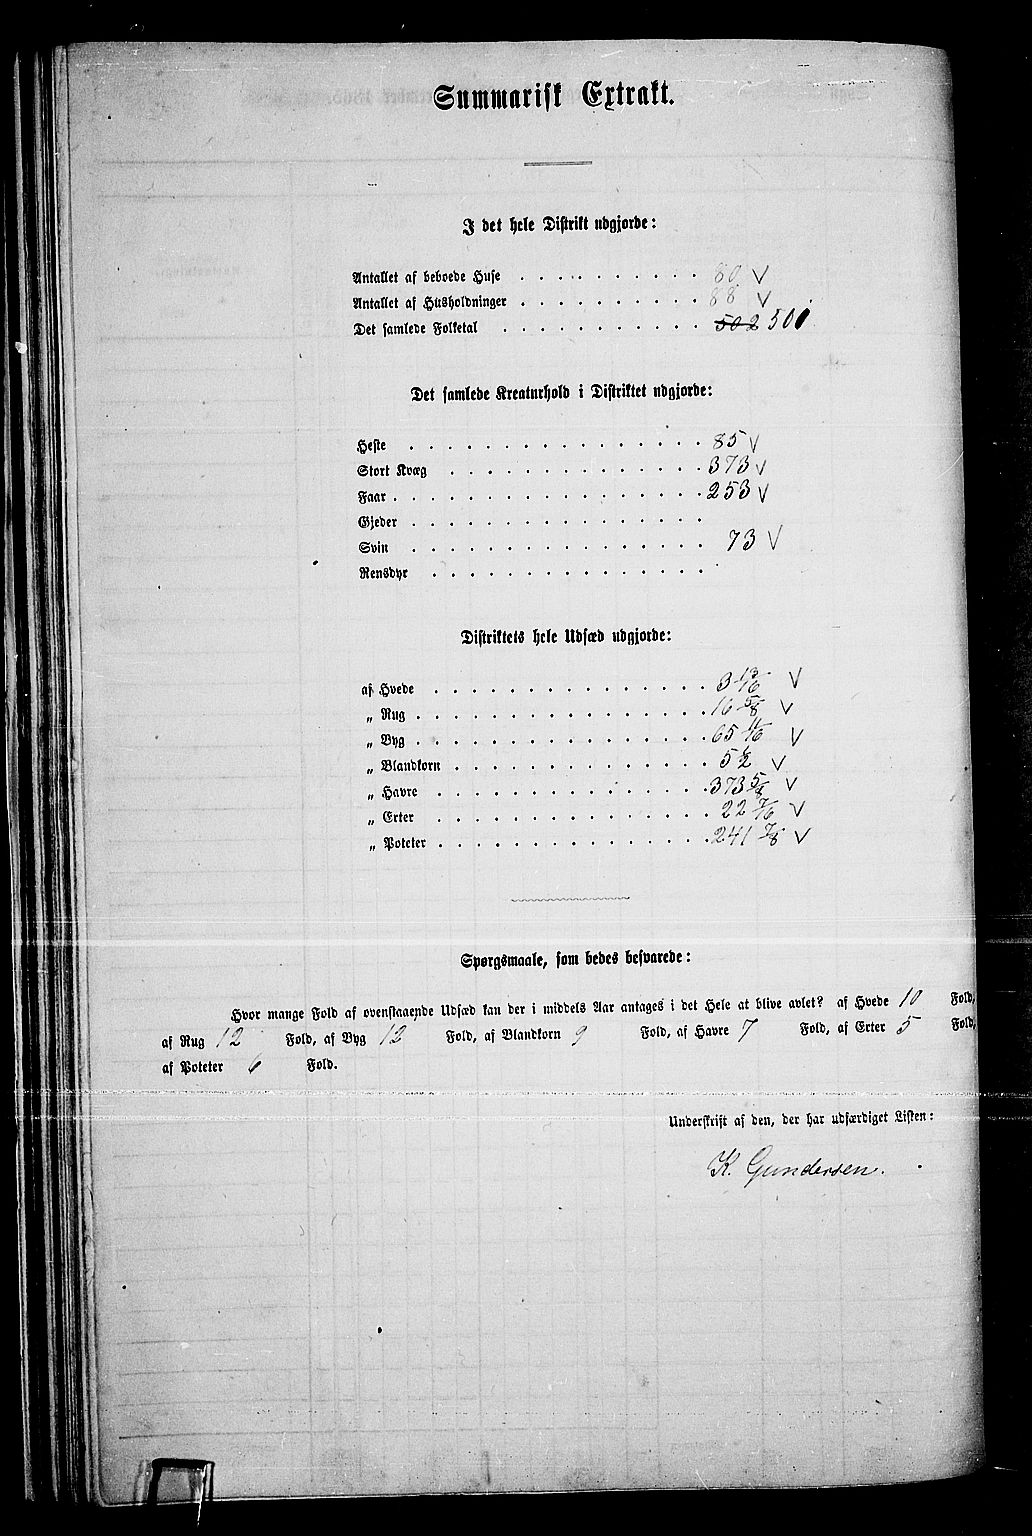 Summarisk Extrakt.
I det hele Distrikt udgjorde:
Antallet af beboede Huse . . . . . . . . . . 80 V
Antallet af Husholdninger . . . . . . . . . . 88 V
Det samlede Folketal . . . . . . . . . . . 502 501
Det samlede Kreaturhold i Distriktet udgjorde:
Heste . . . . . . . . . . . . . . . 85 V
Stort Kvæg . . . . . . . . . . . . . 373 V
Faar . . . . . . . . . . . . . . . . 253 V
Gjeder . . . . . . . . . . . . . . .
Svin . . . . . . . . . . . . . . . 73 V
Rensdyr . . . . . . . . . . . . . .
Distriktets hele Udsæd udgjorde:
af Hvede . . . . . . . . . . . . . . . 3 13/16 V
„ Rug . . . . . . . . . . . . . . . . 16 5/8 V
„ Byg . . . . . . . . . . . . . . . . 65 11/16 V
„ Blandkorn . . . . . . . . . . . . . 5 1/2 V
„ Havre . . . . . . . . . . . . . . . 373 5/8 V
„ Erter . . . . . . . . . . . . . . . 22 7/16 V
„ Poteter . . . . . . . . . . . . . . 241 7/8 V
Spørgsmaale, som bedes besvarede:
Hvor mange Fold af ovenstaaende Udsæd kan der i middels Aar antages i det Hele at blive avlet? af Hvede 10 Fold,
af Rug 12 Fold, af Byg 12 Fold, af Blandkorn 9 Fold, af Havre 7 Fold, af Erter 5 Fold,
af Poteter 6 Fold.
Underskrift af den, der har udfærdiget Listen:
K. Gundersen.